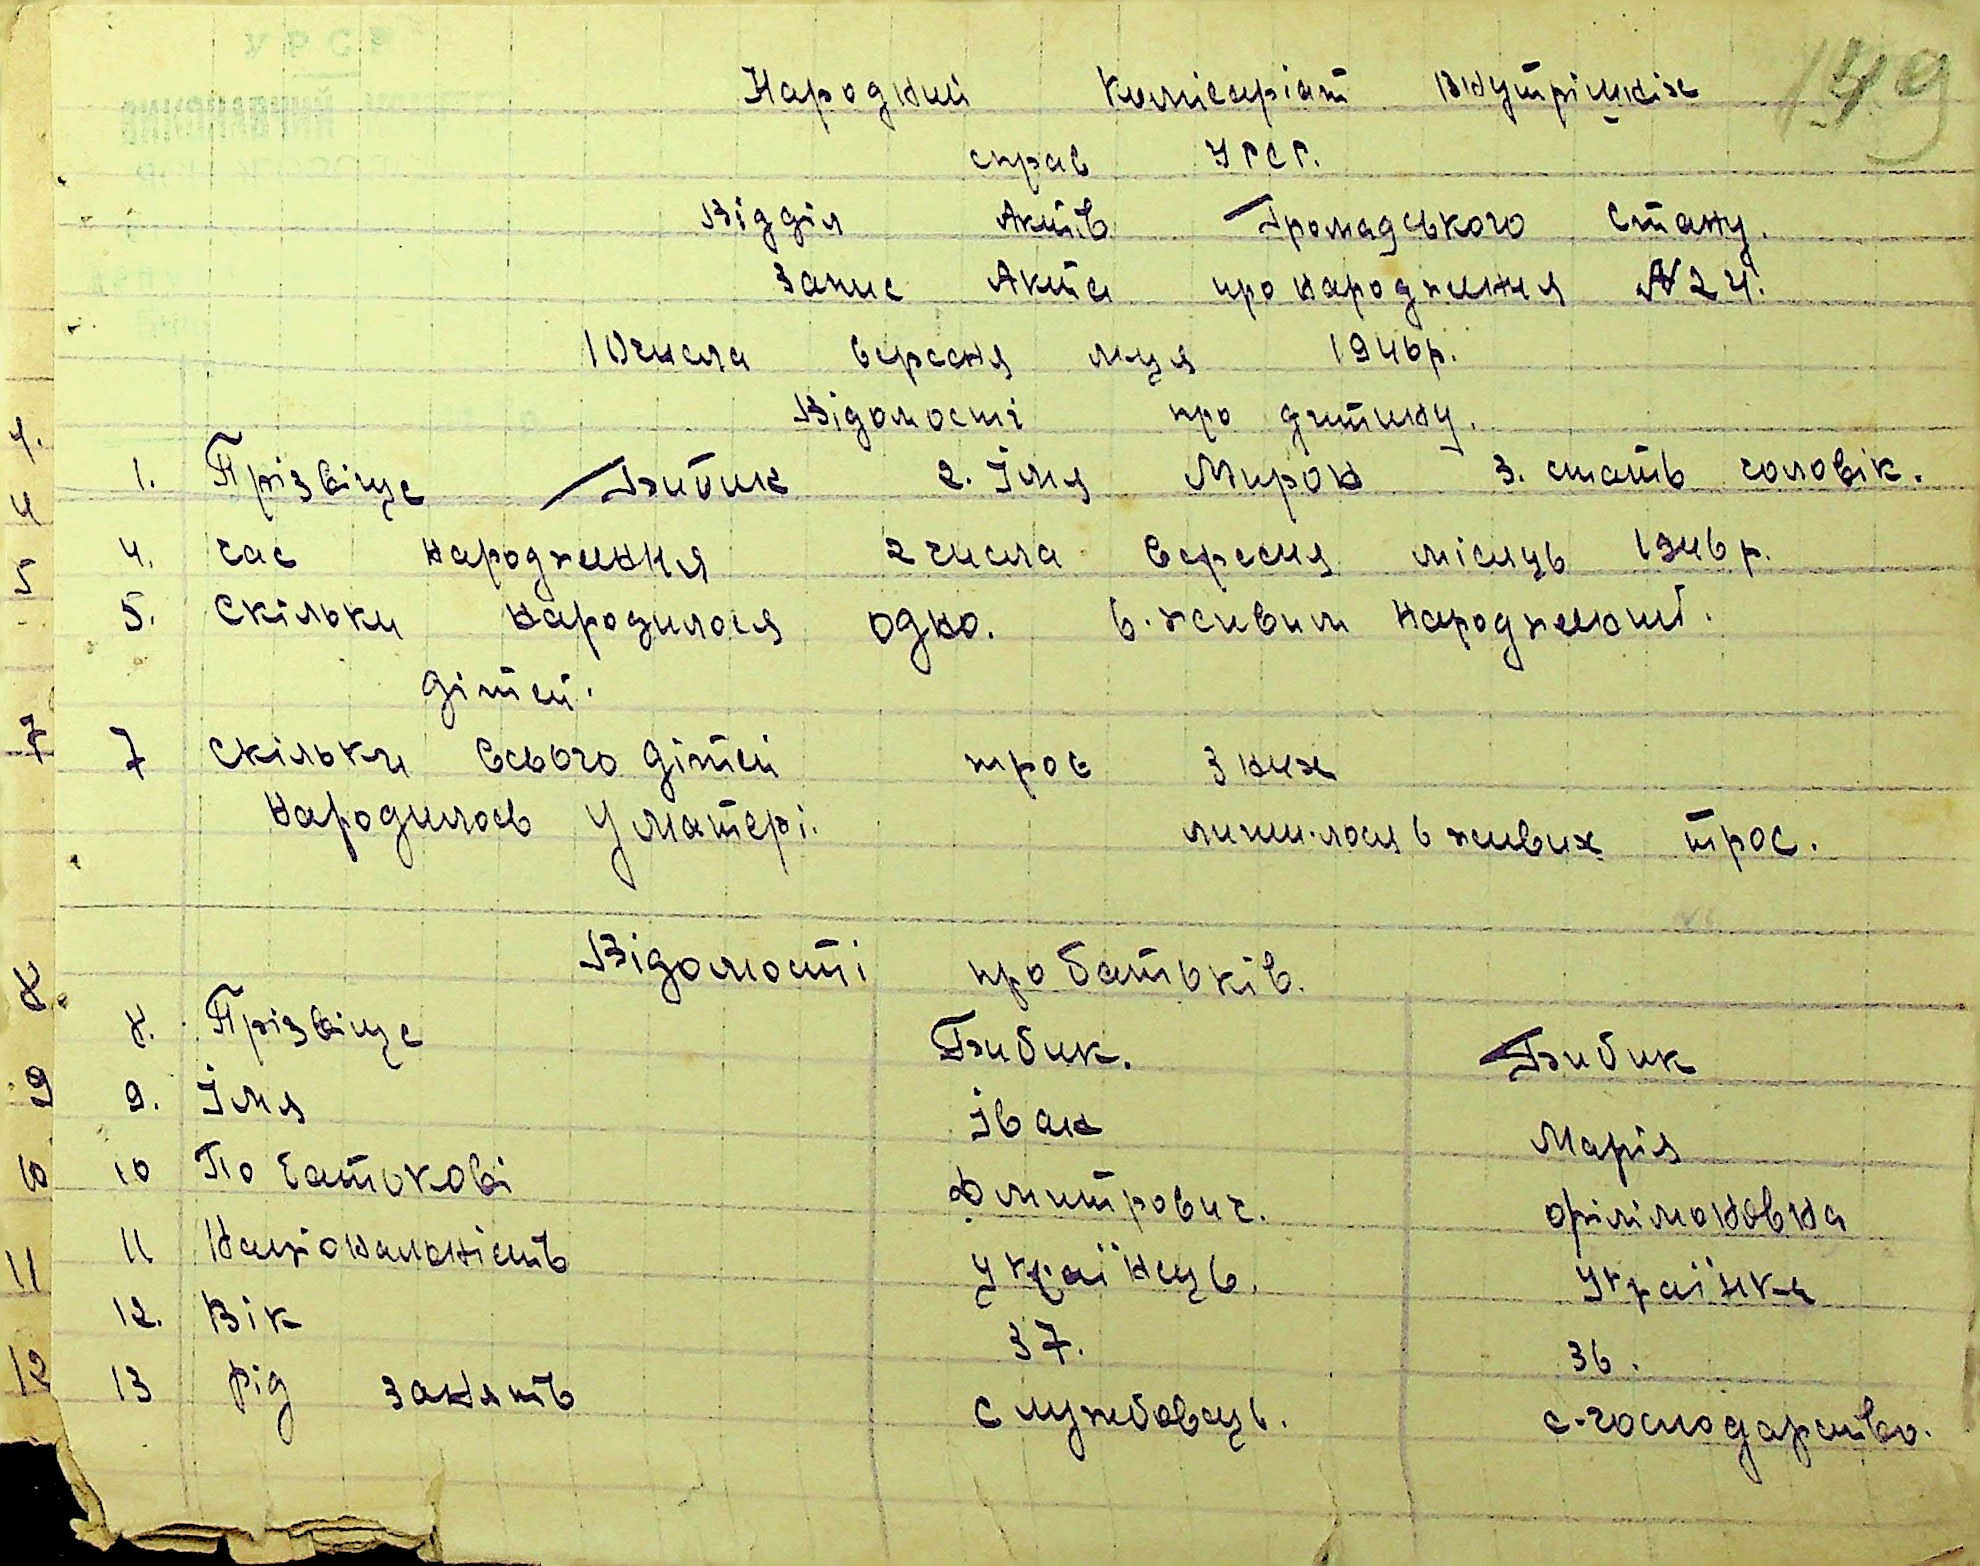 149
Народний Комісаріат Внутрішніх
справ УРСР.
Відділ Актів Громадського Стану.
Запис Акта про народження № 24.
10 числа вересня м-ця 1946 р.
Відомості про дитину.
1. Прізвіще 2. Імя Мирон 3. стать чоловік.
4. час народження 2 числа вересня місяць 1946 р.
5. Скільки народилося одно. 6. живим народжений.
дітей.
7 Скільки всього дітей троє з них
народилось у матері. лишилося в живих троє.
Відомості про батьків.
8. Прізвіще
9. Імя Іван Марія
10 По батькові Дмитрович. Філімоновна
11 Національність Українець. Українка
12. Вік 37. 36.
13 рід занять службовець. с-господарство.
4.
4
5
7
8.
9
10
11
12